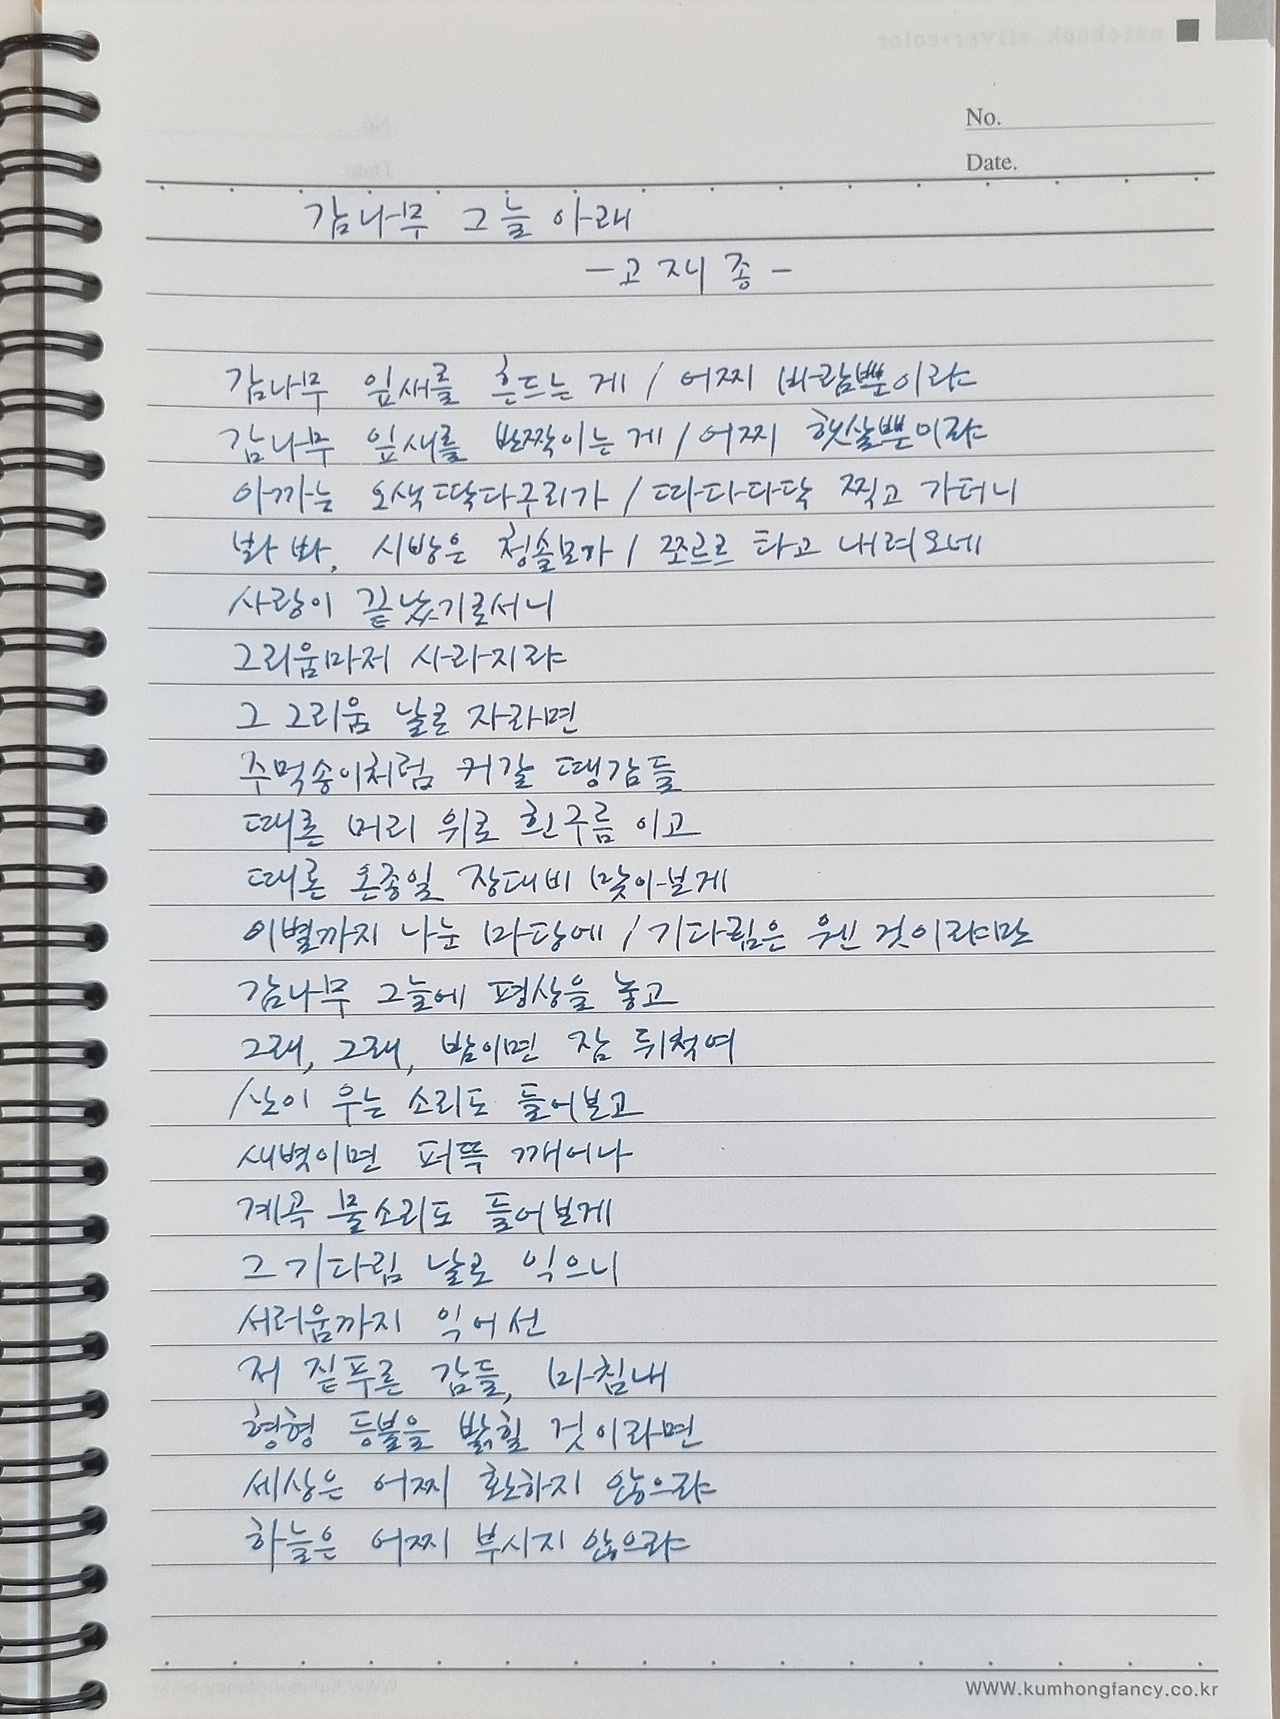 notebook silver+color
No.
Date.
감나무 그늘 아래
-고재종-
감나무 잎새를 흔드는 게 / 어찌 바람뿐이랴
감나무 잎새를 반짝이는 게 / 어찌 햇살뿐이랴
아까는 오색딱다구리가 / 따다다닥 찍고 가더니
봐 봐, 시방은 청솔모가 / 쪼르르 타고 내려오네
사랑이 끝났기로서니
그리움마저 사라지랴
그 그리움 날로 자라면
주먹송이처럼 커갈 땡감들
때론 머리 위로 흰구름 이고
때론 온종일 장대비 맞아보게
이별까지 나눈 마당에 / 기다림은 웬 것이랴만
감나무 그늘에 평상을 놓고
그래, 그래, 밤이면 잠 뒤척여
산이 우는 소리도 들어보고
새벽이면 퍼뜩 깨어나
계곡 물소리도 들어보게
그 기다림 날로 익으니
서러움까지 익어선
저 짙푸른 감들, 마침내
형형 등불을 밝힐 것이라면
세상은 어찌 환하지 않으랴
하늘은 어찌 부시지 않으랴
www.kumhongfancy.co.kr